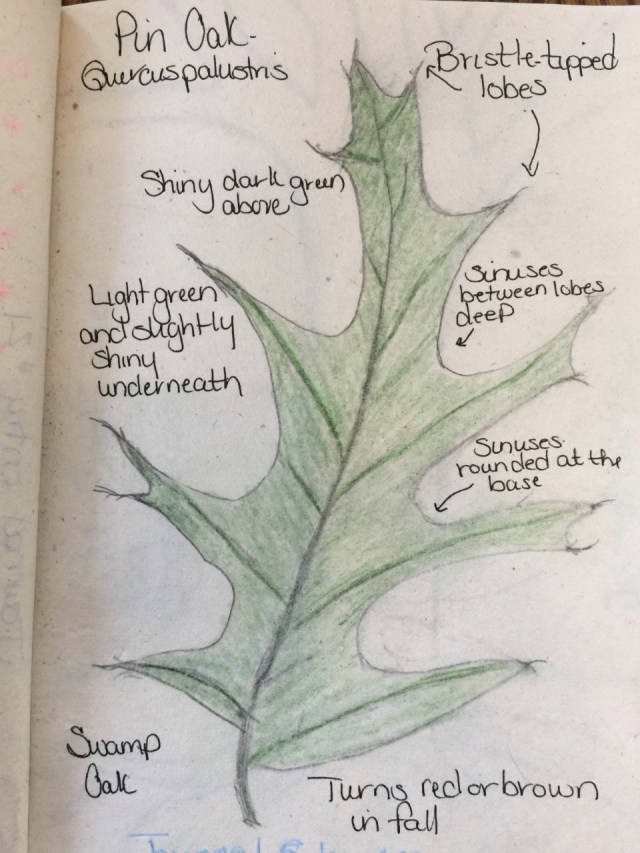 Pin Oak-
Quercus palustris
Bristle-tipped
lobes
Shiny dark green
above
Light green
and slightly
shiny
underneath
Sinuses
between lobes
deep
Sinuses
rounded at the
base
Swamp
Oak
Turns red or brown
in fall